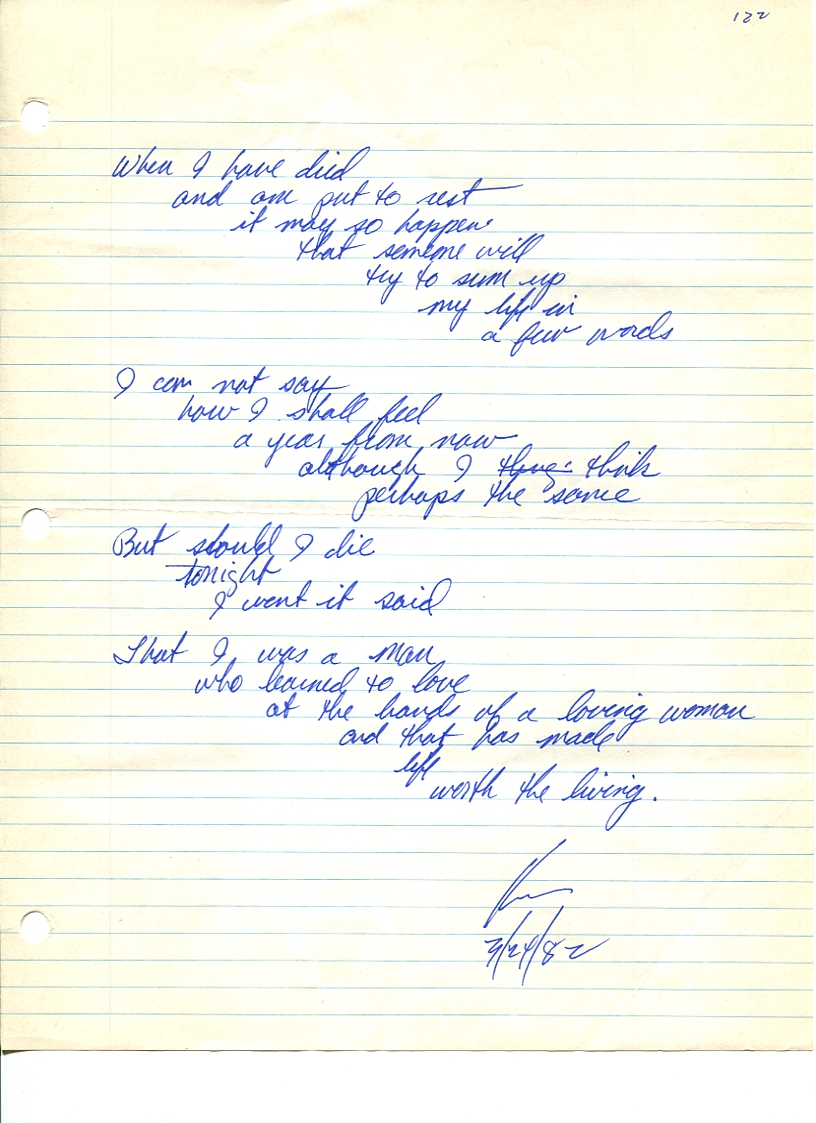 122
When I have died
and am put to rest
it may so happen
that someone will
try to sum up
my life in
a few words
I can not say
how I shall feel
a year from now
although I think
perhaps the same
But should I die
tonight
I want it said
That I was a man
who learned to love
at the hands of a loving woman
and that has made
life
worth the living.
3/24/82